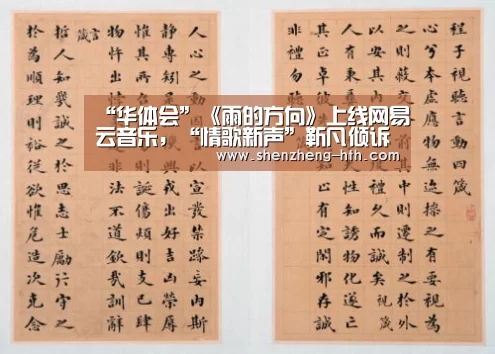 “华体会”《雨的方向》上线网易
云音乐，“情歌新声”靳凡倾诉
www.shenzheng-hth.com
程子視聽言動四箴
心兮本虛應物無迹操之有要視為
前其中則遷制之於外
以安其
禮久而誠矣
視箴
人有秉
性知誘物化遂亡
其正卓彼
知止有定閑邪存誠
非禮勿
人心之
以宣發禁躁妄內斯
靜專矧
機興戎出好吉凶榮辱
惟其所
則誕傷煩則支己肆
物忤出
非法不道欽哉訓辭
言箴
哲人知幾誠之於思志士勵行守之
於為順理則裕從欲惟危造次克念